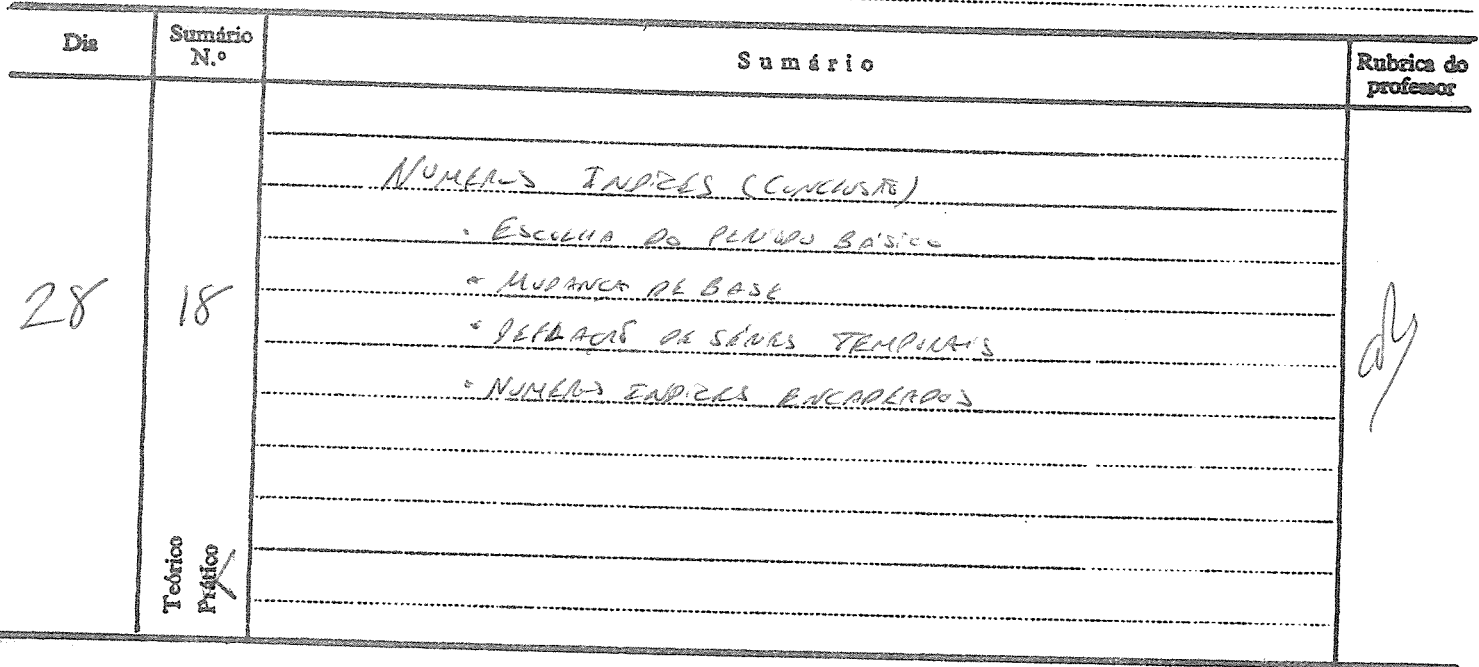 Dia
Sumário N.º
Sumário
Rubrica do professor
28
18
NUMEROS INDICES (CONCLUSÃO)
• ESCOLHA DO PERÍODO BÁSICO
• MUDANÇA DE BASE
• DEFLAÇÃO DE SÉRIES TEMPORAIS
• NUMEROS INDICES ENCADEADOS
Teórico
Prático